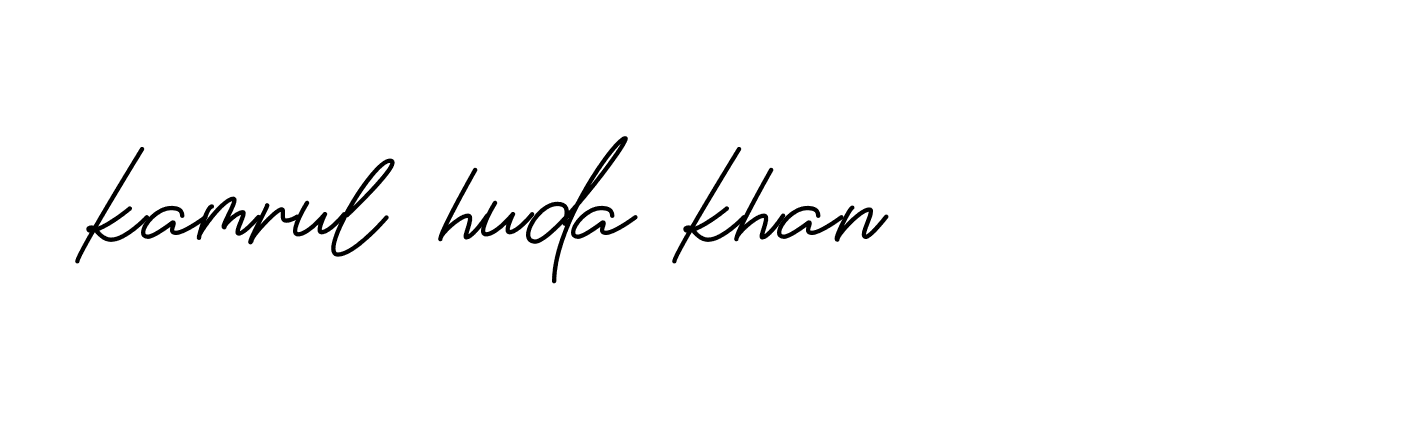 kamrul huda khan